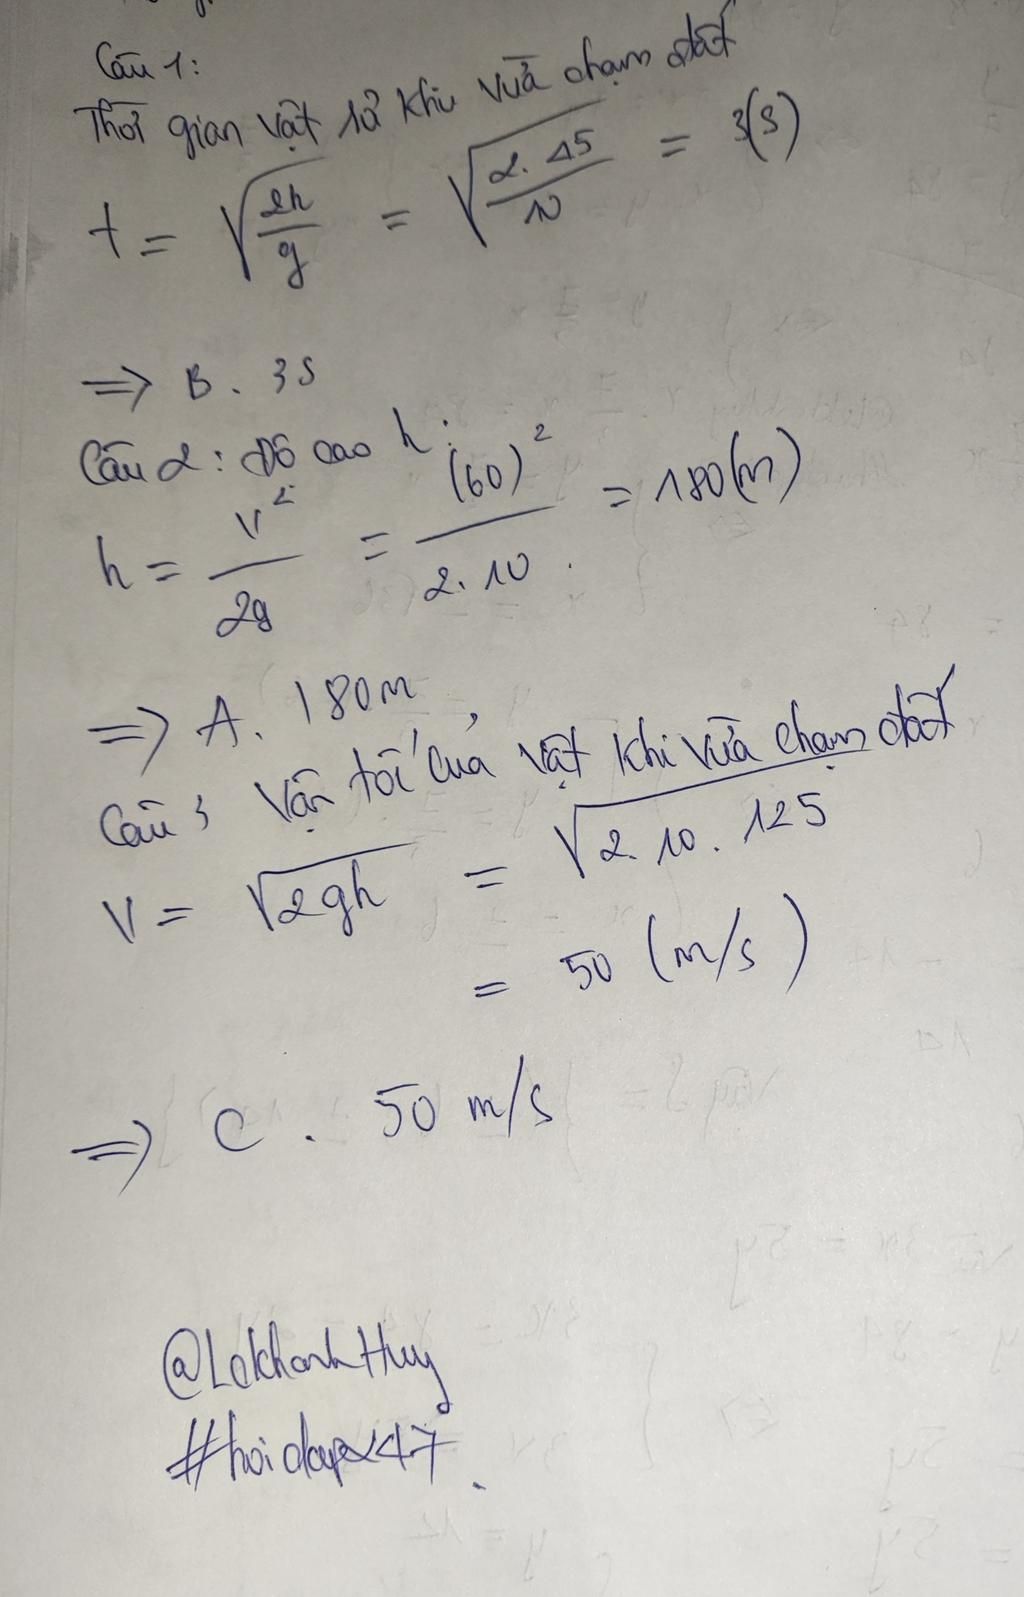 Câu 1:
Thời gian vật từ khi vừa chạm đất
t = √(2h/g) = √(2.45/10) = 3(s)
=> B. 3s
Câu 2: Độ cao h:
h = v²/2g = (60)²/2.10. = 180(m)
=> A. 180m
Câu 3 Vận tốc của vật khi vừa chạm đất
V = √2gh = √2.10.125
= 50 (m/s)
=> C. 50 m/s
@LekhanhHuy
#hoidap247.